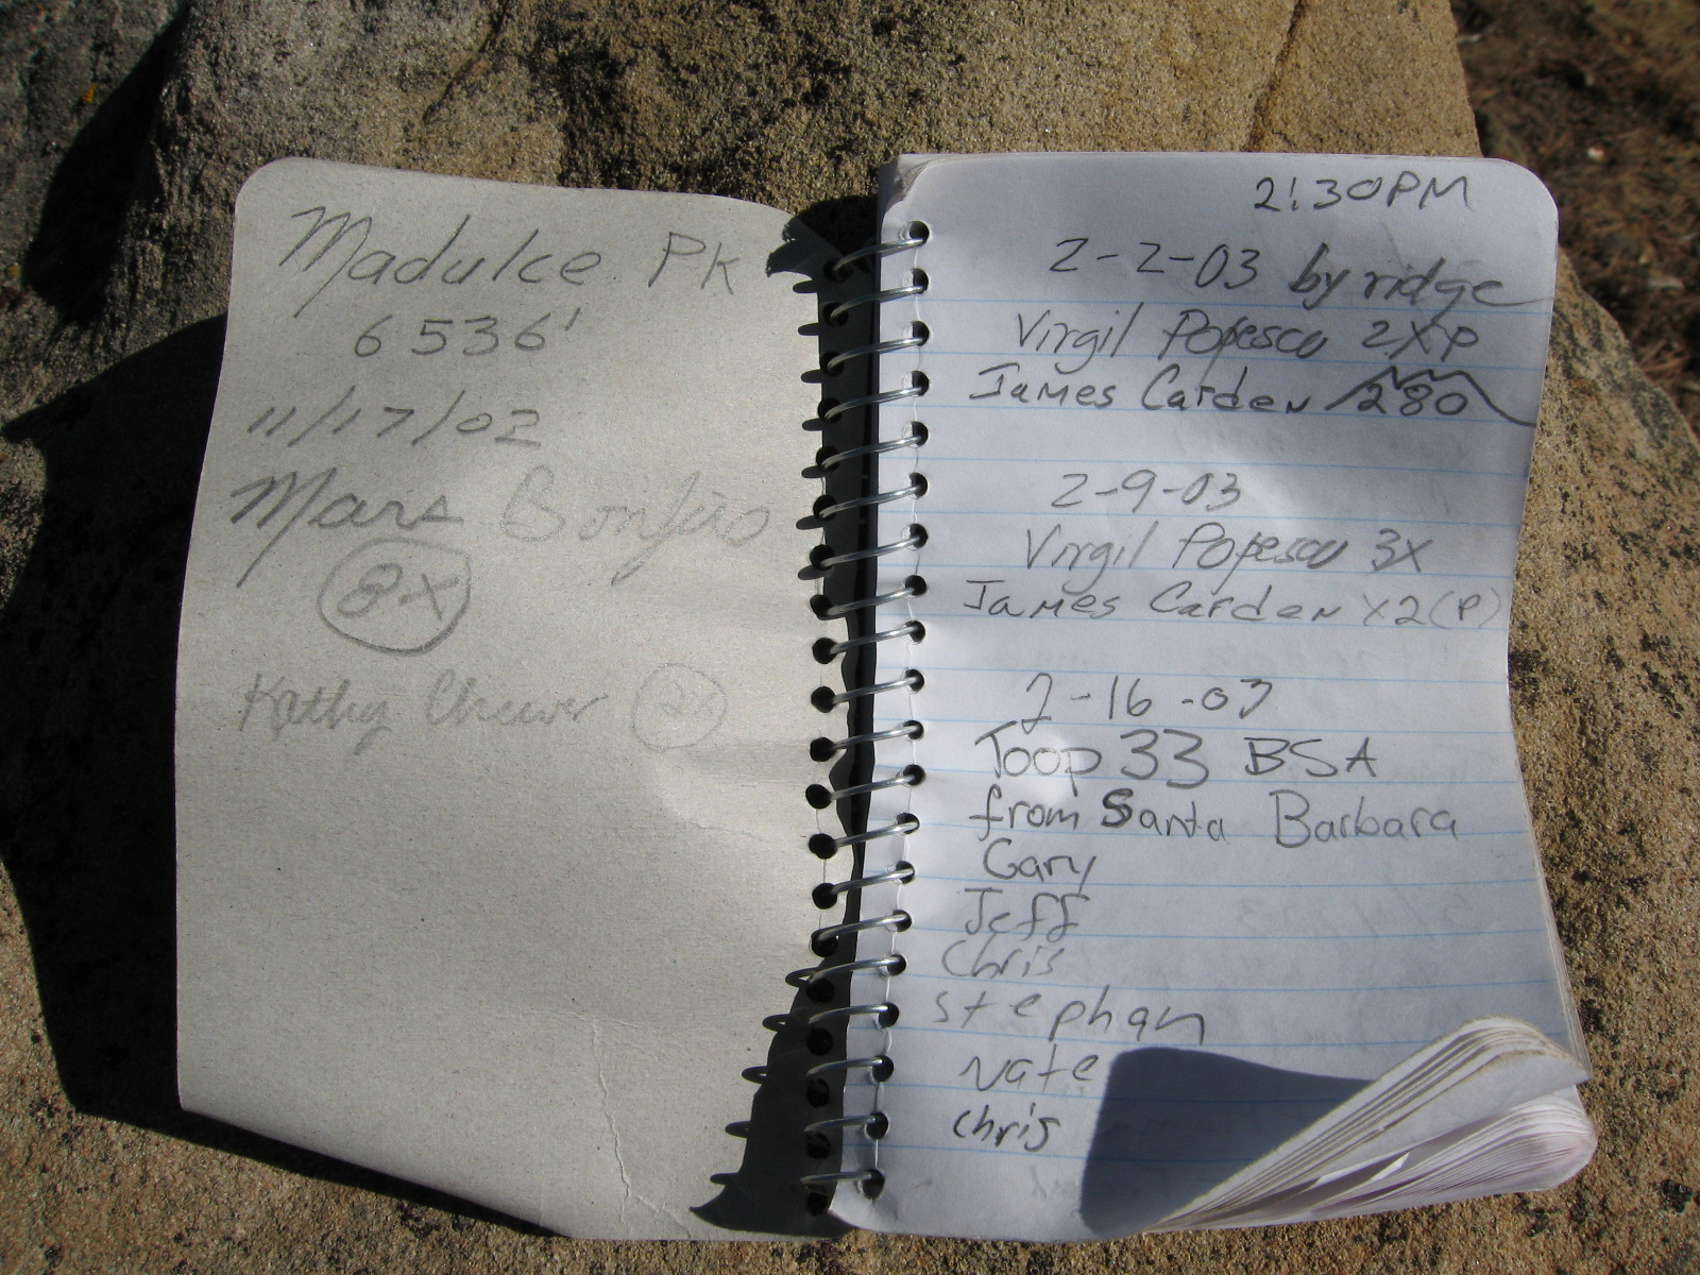 Madulce Pk
6536'
11/17/02
Mars Bonfire
8x
Kathy
2:30PM
2-2-03 by ridge
Virgil Popescu 2XP
James Carden 280
2-9-03
Virgil Popescu 3X
James Carden X2(P)
2-16-03
Toop 33 BSA
from Santa Barbara
Gary
Jeff
Chris
Stephan
Nate
Chris